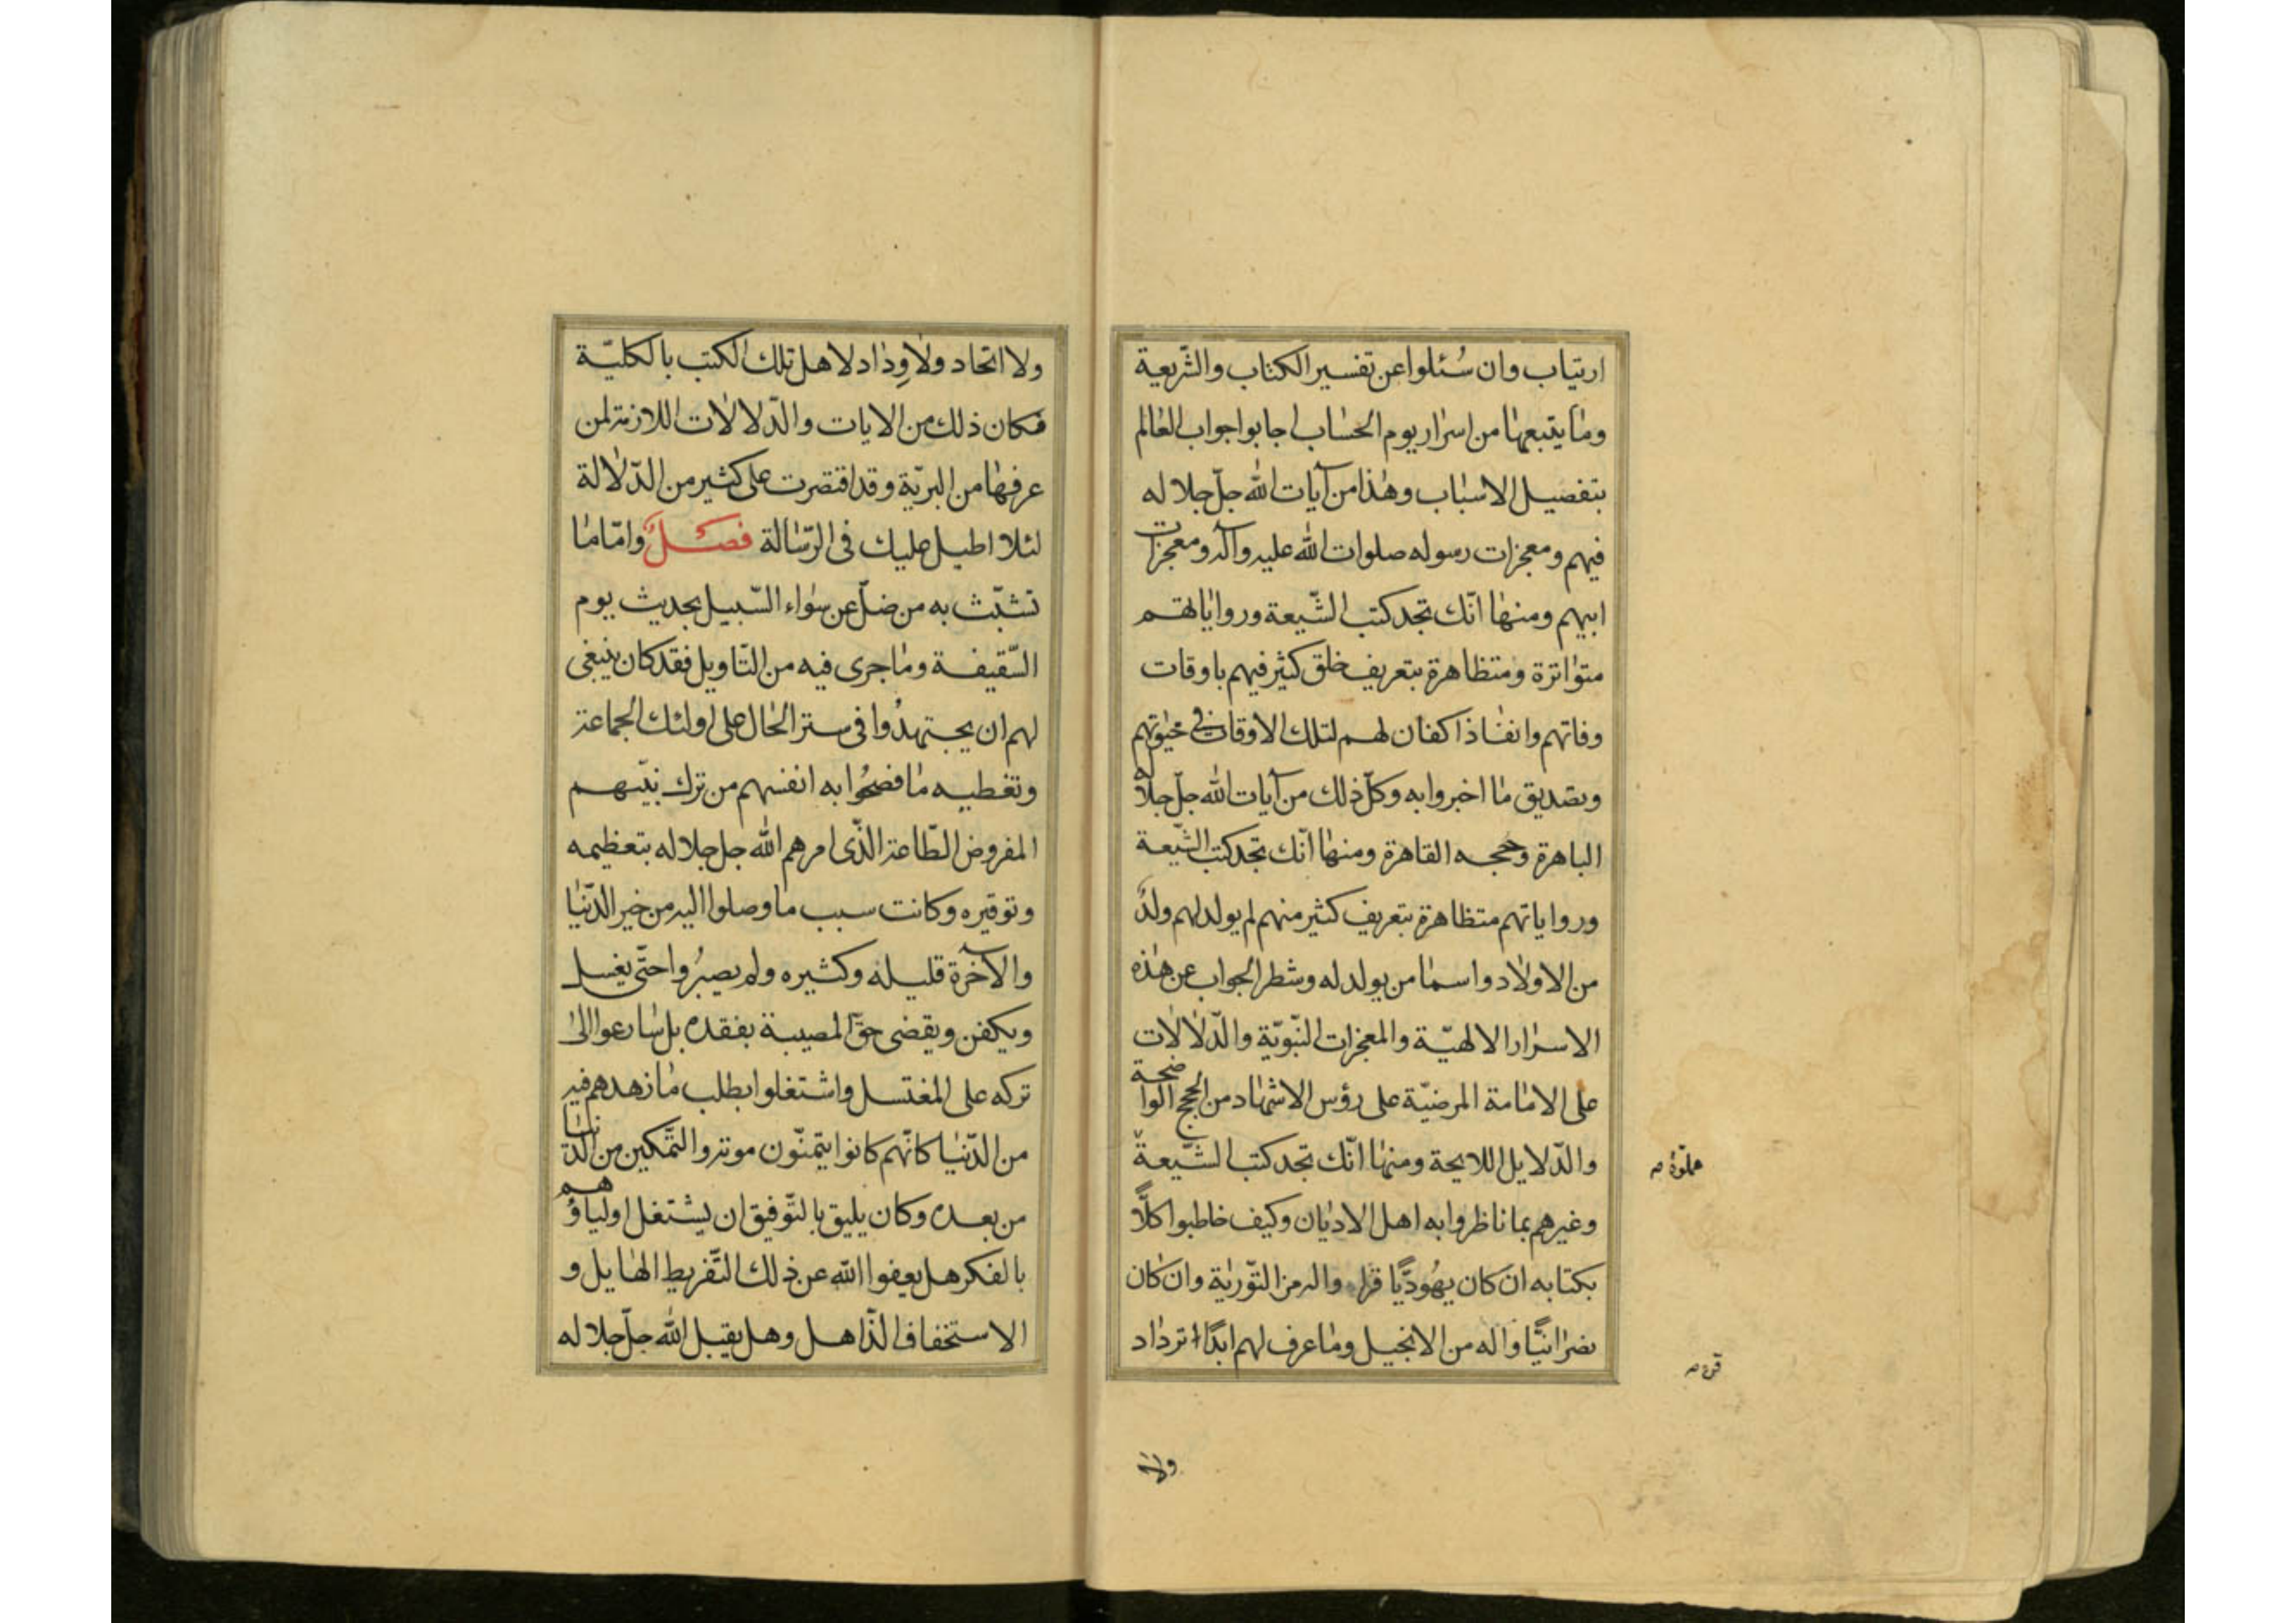 ارتياب وان سُئلوا عن تفسير الكتاب والشّريعة
وما يتبعها من اسرار يوم الحساب اجابوا جواب العالم
بتفصيل الاسباب وهذا من آيات الله جلّ جلاله
فيهم ومعجزات رسوله صلوات الله عليه وآله ومعجزات
ابيهم ومنها انّك تجد كتب الشّيعة ورواياتهم
متواترة ومتظاهرة بتعريف خلق كثير فيهم باوقات
وفاتهم وانفاذ اكفان لهم لتلك الاوقات في حيوتهم
وتصديق ما اخبروا به وكلّ ذلك من آيات الله جلّ جلاله
الباهرة وحججه القاهرة ومنها انّك تجد كتب الشّيعة
ورواياتهم متظاهرة بتعريف كثير منهم لم يولد لهم ولدٌ
من الاولاد واسما من يولد له وشطر الجواب عن هذه
الاسرار الالهيّة والمعجزات النّبويّة والدّلالات
على الامامة المرضيّة على رؤس الاشهاد من الحجج الواضحة
والدّلايل اللايحة ومنها انّك تجد كتب الشّيعة
مملوّة
وغيرهم بما ناظروا به اهل الاديان وكيف خاطبوا كلّاً
بكتابه ان كان يهُوديًّا واله من التّورية وان كان
نصرانيًّا واله من الانجيل وما عرف لهم ابدًا ترداد
ولا
ولا اتحاد ولا وِداد لاهل تلك الكتب بالكليّة
فكان ذلك من الايات والدّلالات اللازمة لمن
عرفها من البريّة وقد اقتصرت على كثير من الدّلالة
لئلا اطيل عليك فى الرّسالة فصلٌ وامّا ما
تشبّث به من ضلّ عن سواء السّبيل بحديث يوم
السّقيفة وما جرى فيه من التّاويل فقد كان ينبغى
لهم ان يجتهدُوا فى ستر الحال على اولئك الجماعة
وتغطيه ما فضحُوا به انفسهم من ترك نبيّهم
المفروض الطّاعة الّذى امرهم الله جل جلاله بتعظيمه
وتوقيره وكانت سبب ما وصلوا اليه من خير الدّنيا
والآخرة قليله وكثيره ولم يصبرُوا حتّى يغسل
ويكفن ويقضى حقّ المصيبة بفقده بل سارعوا الى
تركه على المغتسل واشتغلوا بطلب ما زهدهم فيه
من الدّنيا كانّهم كانوا يتمنّون موته والتّمكين من الدّنيا
من بعده وكان يليق بالتّوفيق ان يشتغل اولياؤهم
بالفكر هل يعفوا الله عن ذلك التّفريط الهايل و
الاستخفاف الذّاهل وهل يقبل الله جلّ جلاله